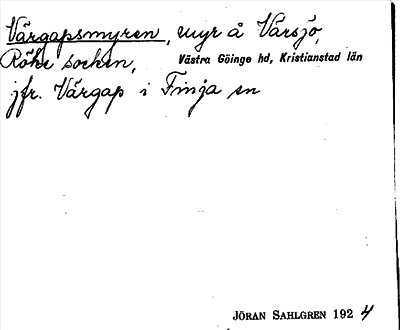 Vårgapsmyren, myr å Varsjö,
Röke socken, Västra Göinge hd, Kristianstad län
jfr. Vårgap i Finja sn
JÖRAN SAHLGREN 1924